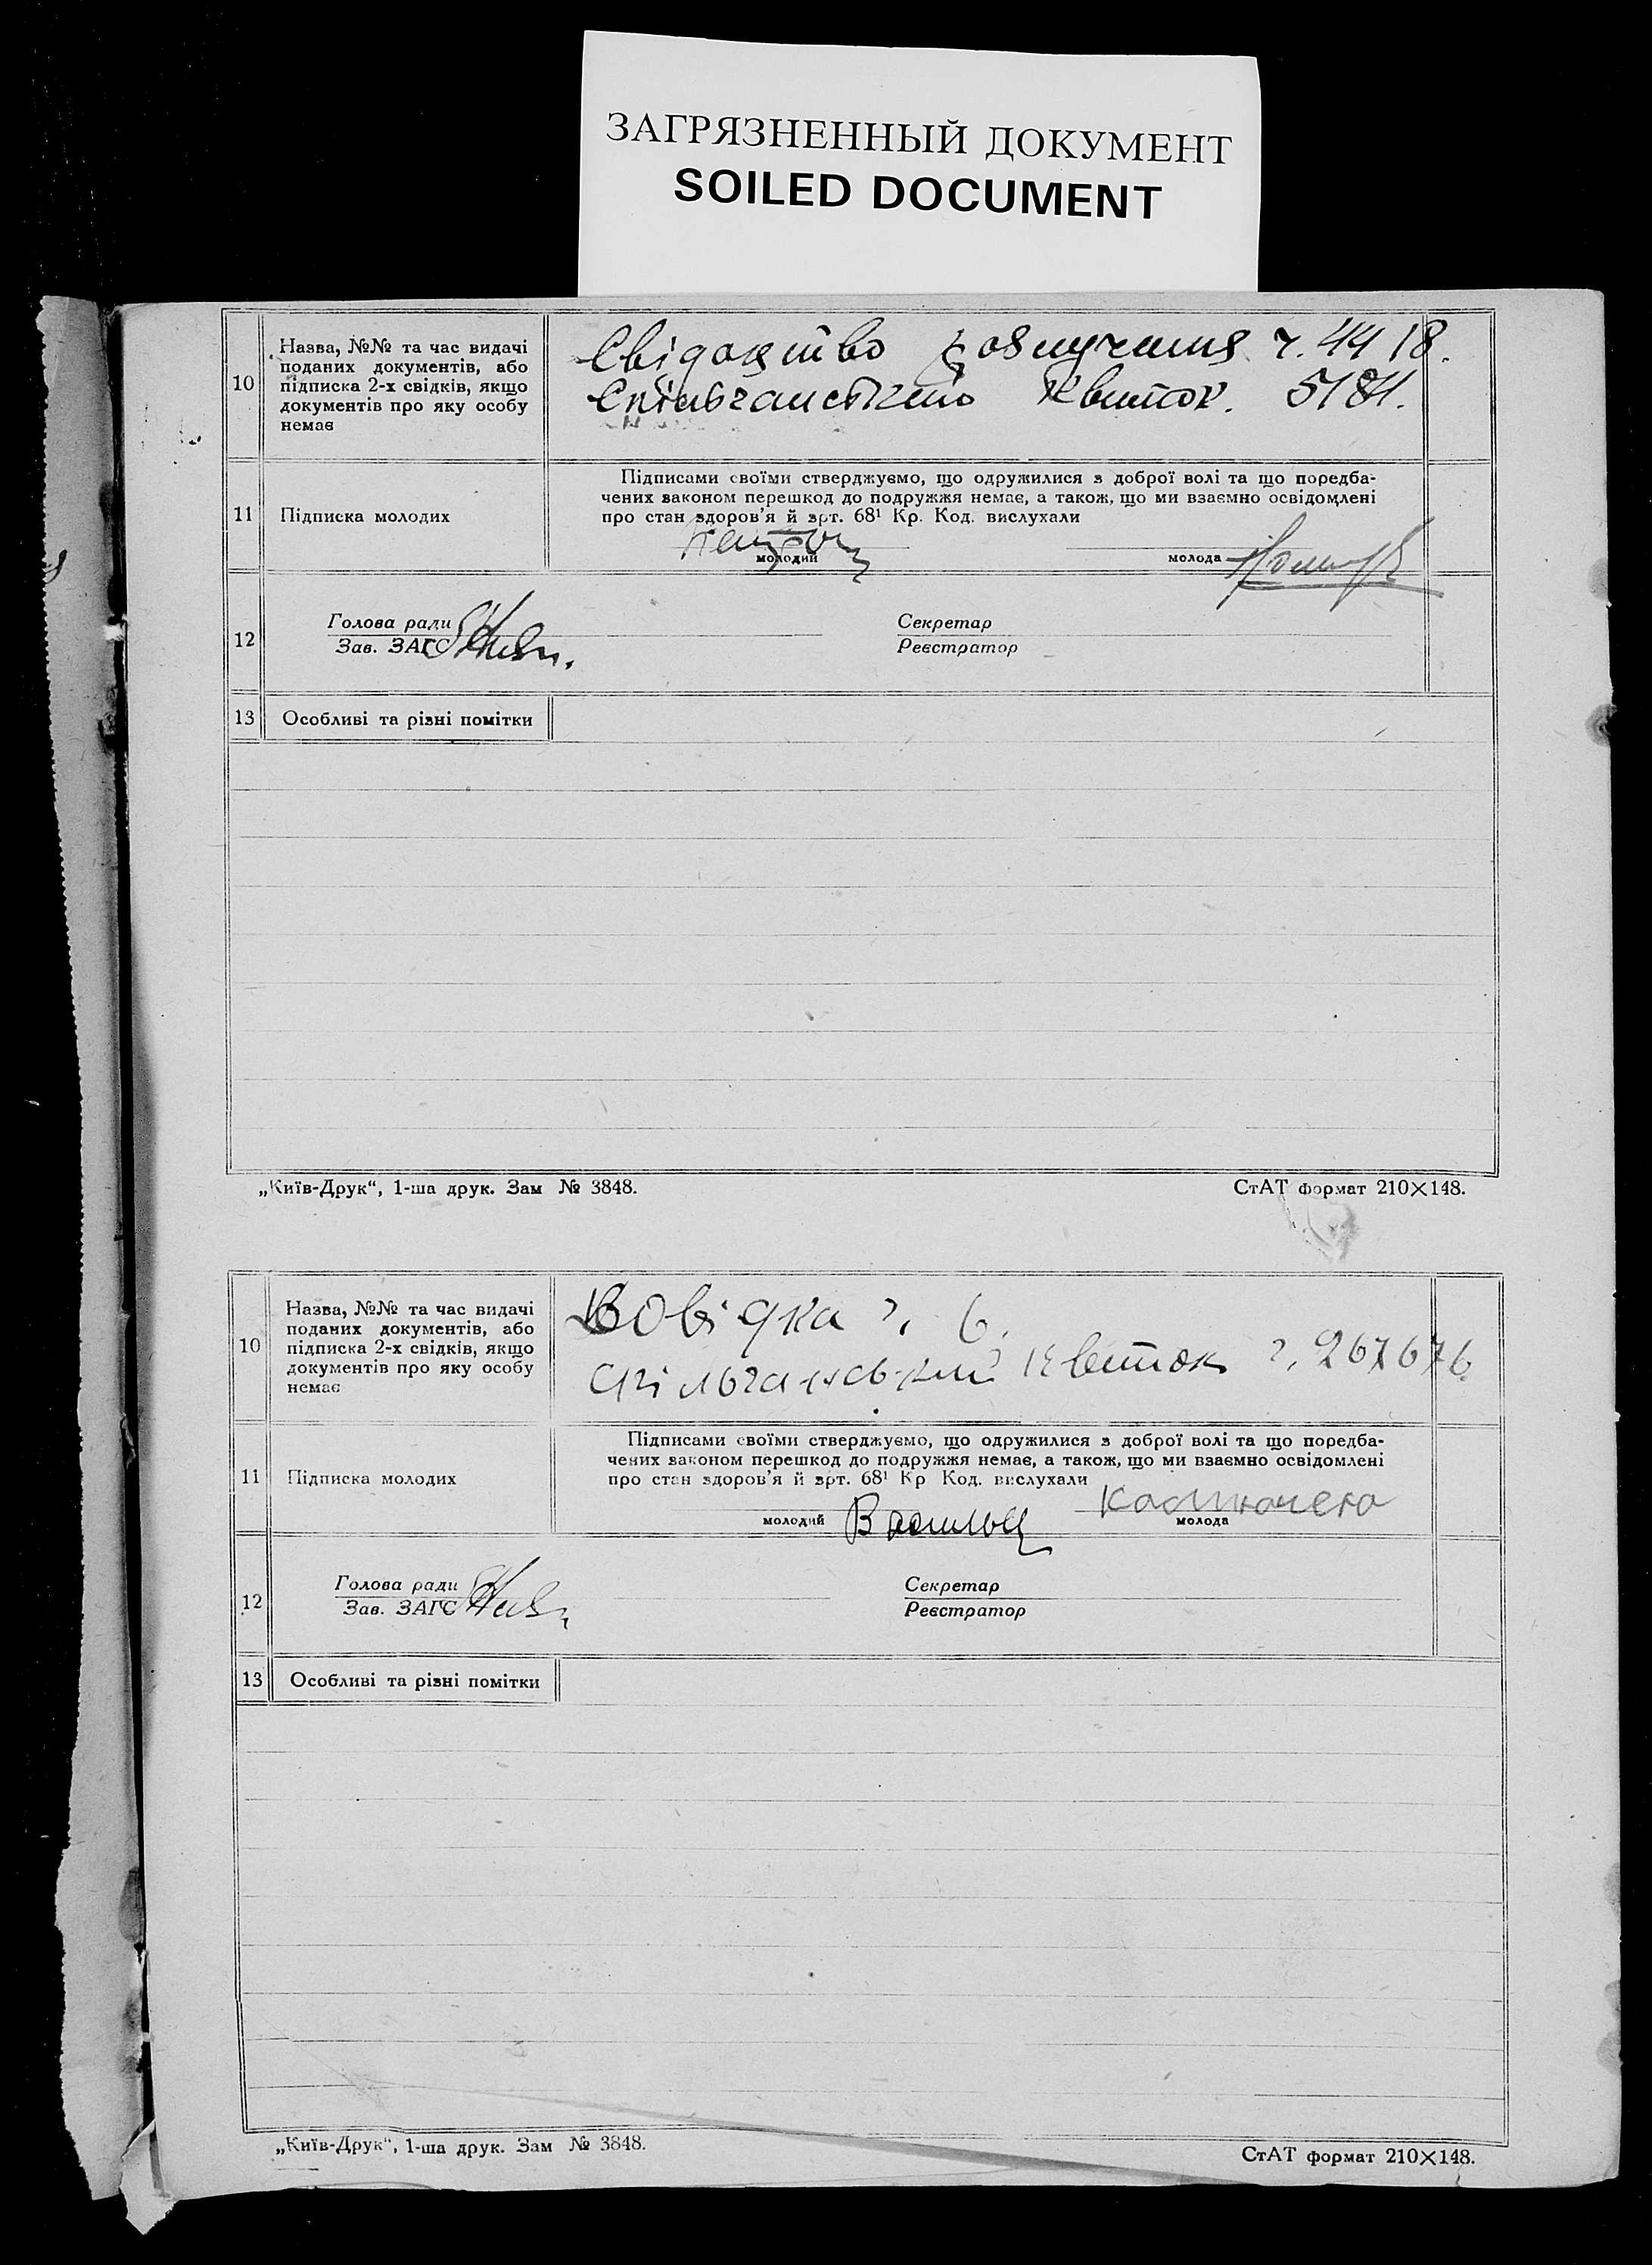 ЗАГРЯЗНЕННЫЙ ДОКУМЕНТ
SOILED DOCUMENT
10
Назва, №№ та час видачі
поданих документів, або
підписка 2-х свідків, якщо
документів про яку особу
немає
Свідоцтво розлучення ч. 4418.
Спільчанський квиток. 5181.
11
Підписка молодих
Підписами своїми стверджуємо, що одружилися з доброї волі та що поредба-
чених законом перешкод до подружжя немає, а також, що ми взаємно освідомлені
про стан здоров'я й арт. 68¹ Кр. Код. вислухали
молодий
молода
12
Голова ради
Зав. ЗАГС
Секретар
Реєстратор
13
Особливі та різні помітки
„Київ-Друк“, 1-ша друк. Зам № 3848.
СтАТ формат 210×148.
10
Назва, №№ та час видачі
поданих документів, або
підписка 2-х свідків, якщо
документів про яку особу
немає
Довідка ч. 6.
Спільчанський квиток ч. 267676
11
Підписка молодих
Підписами своїми стверджуємо, що одружилися з доброї волі та що поредба-
чених законом перешкод до подружжя немає, а також, що ми взаємно освідомлені
про стан здоров'я й арт. 68¹ Кр Код. вислухали
молодий
молода
12
Голова ради
Зав. ЗАГС
Секретар
Реєстратор
13
Особливі та різні помітки
„Київ-Друк“, 1-ша друк. Зам № 3848.
СтАТ формат 210×148.